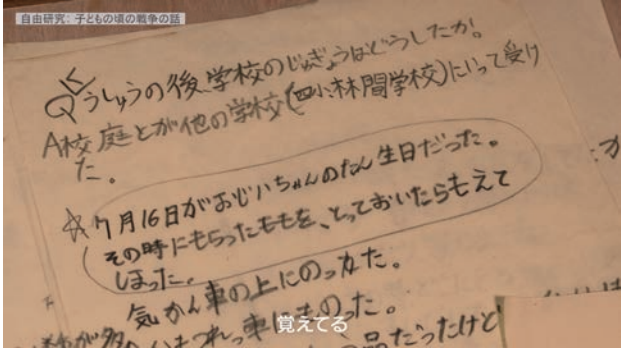 自由研究:子どもの頃の戦争の話
Qくうしゅうの後、学校のじゅぎょうはどうしたか。
A校庭とか他の学校(四小林間学校)にいって受け
た。
☆7月16日がおじいちゃんのたん生日だった。
その時にもらったももを、とっておいたらもえて
しまった。
気かん車の上にのった。
車にものった。
品だったけど
覚えてる